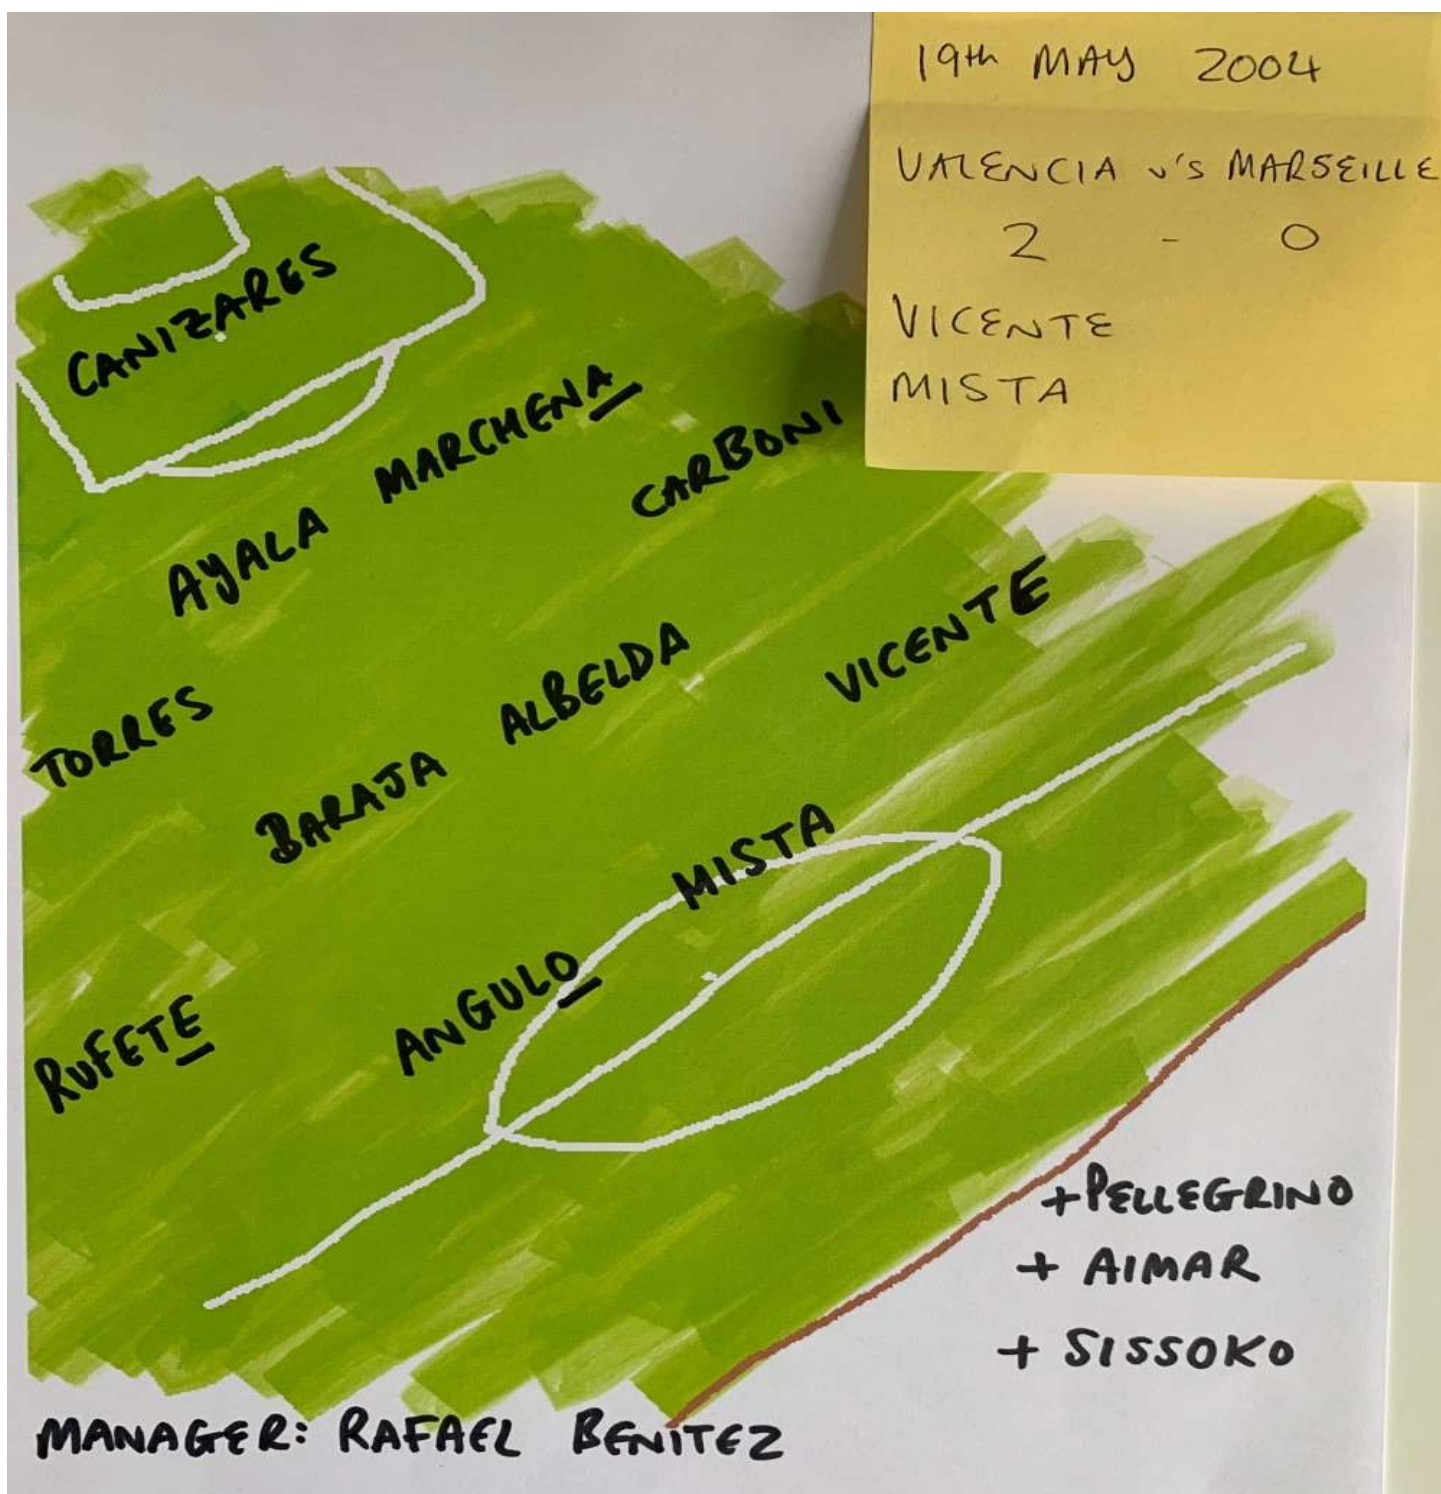 19th MAY 2004
VALENCIA v's MARSEILLE
2 - 0
VICENTE
MISTA
CANIZARES
AYALA MARCHENA CARBONI
TORRES
BARAJA ALBELDA VICENTE
RUFETE
ANGULO MISTA
+ PELLEGRINO
+ AIMAR
+ SISSOKO
MANAGER: RAFAEL BENITEZ